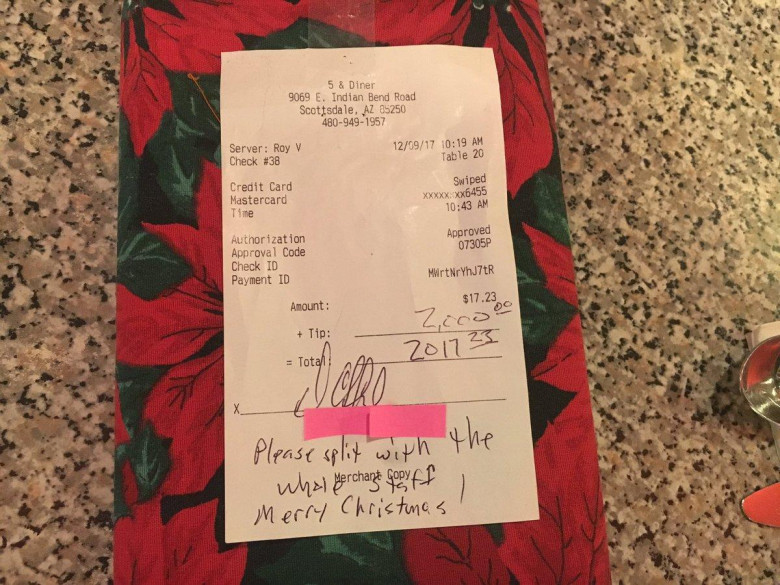 5 & Diner
9069 E. Indian Bend Road
Scottsdale, AZ 85250
480-949-1957
Server: Roy V 12/09/17 10:19 AM
Check #38 Table 20
Credit Card Swiped
Mastercard xxxxx.xx6455
Time 10:43 AM
Authorization Approved
Approval Code 07305P
Check ID
Payment ID MWrtNrYhJ7tR
Amount: $17.23
+ Tip: 2,000.00
= Total: 2017 23
X
Please split with the
Merchant Copy
whole staff!
Merry Christmas